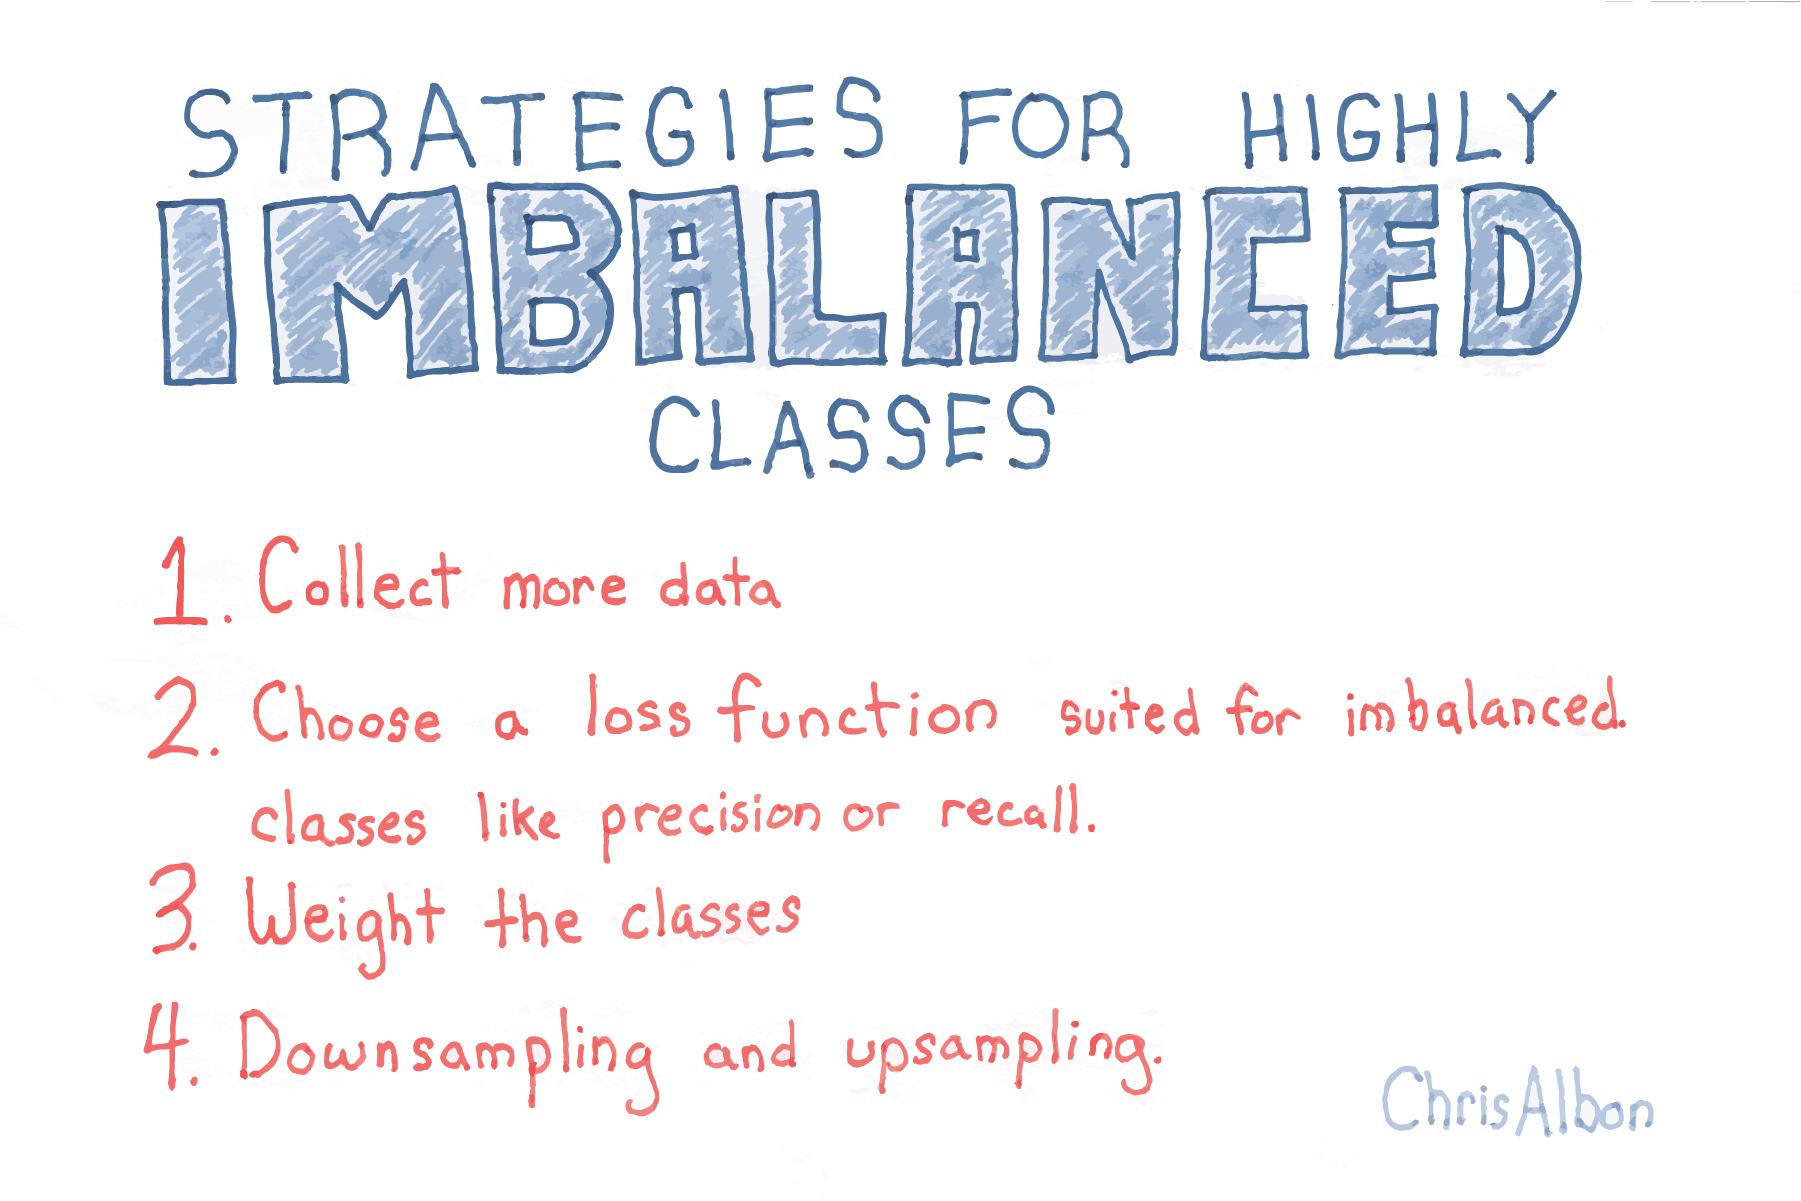 STRATEGIES FOR HIGHLY
IMBALANCED
CLASSES
1. Collect more data
2. Choose a loss function suited for imbalanced.
classes like precision or recall.
3. Weight the classes
4. Downsampling and upsampling.
ChrisAlbon